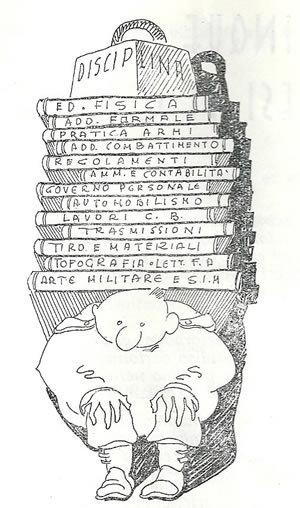 DISCIPLINA
ED. FISICA
ADD. FORMALE
PRATICA ARMI
ADD. COMBATTIMENTO
REGOLAMENTI
AMM. E CONTABILITA'
GOVERNO PERSONALE
AUTOMOBILISMO
LAVORI C. B.
TRASMISSIONI
TIRO E MATERIALI
TOPOGRAFIA e LETT. T. A
ARTE MILITARE E S.I.M